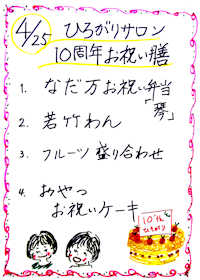 4/25 ひろがりサロン
10周年お祝い膳
1. なだ万お祝い弁当
「琴」
2. 若竹わん
3. フルーツ盛り合わせ
4. おやつ
お祝いケーキ
10th